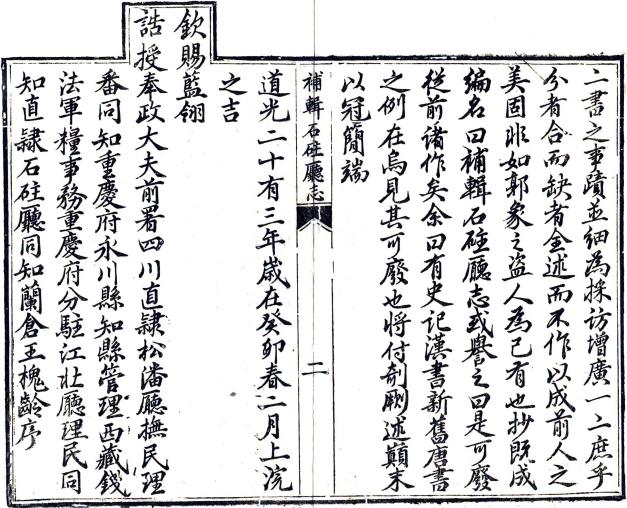 二書之事蹟並細為採訪增廣一二庶乎
分者合而缺者全述而不作以成前人之
美固非如郭象之盜人為己有也抄既成
編名曰補輯石砫廳志或譽之曰是可廢
從前諸作矣余曰有史記漢書新舊唐書
之例在烏見其可廢也將付剞劂述顛末
以冠簡端
補輯石砫廳志
二
道光二十有三年歲在癸卯春二月上浣
之吉
欽賜藍翎
誥授奉政大夫前署四川直隸松潘廳撫民理
番同知重慶府永川縣知縣管理西藏錢
法軍糧事務重慶府分駐江北廳理民同
知直隸石砫廳同知蘭倉王槐齡序